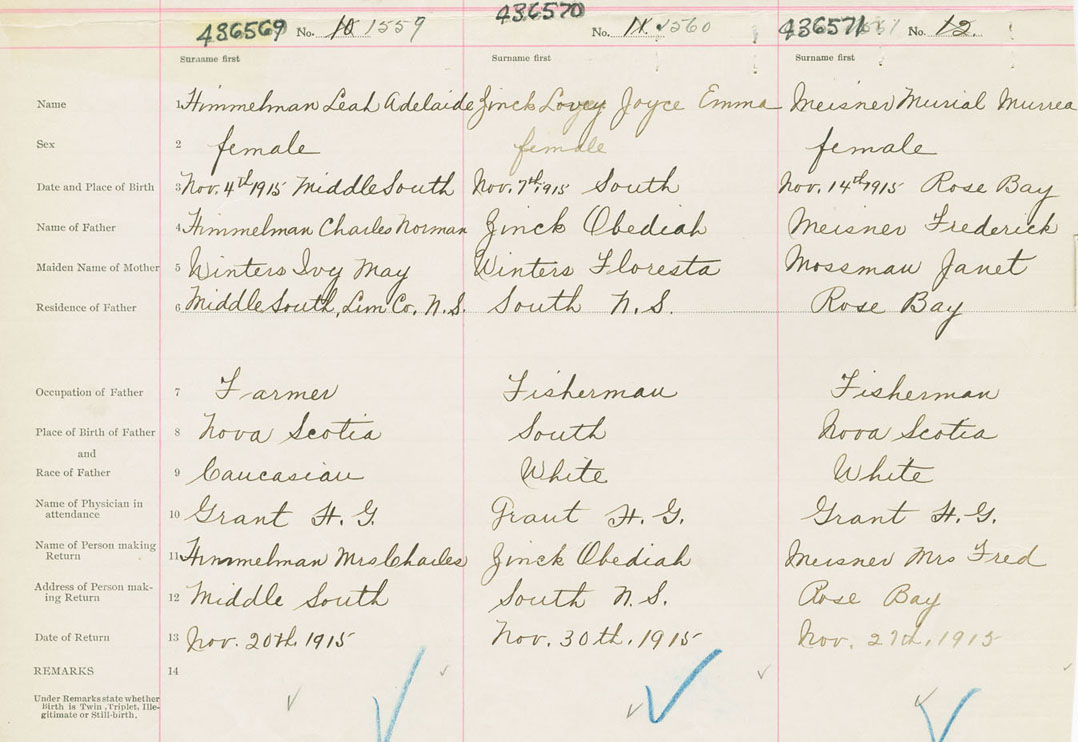 436569 No. 10 1559 436570 No. 11 1560 436571 1561 No. 12.
Surname first Surname first Surname first
Name 1 Himmelman Leah Adelaide Zinck Lovey Joyce Emma Meisner Murial Murrea
Sex 2 female female female
Date and Place of Birth 3 Nov. 4th 1915 Middle South Nov. 7th 1915 South Nov. 14th 1915 Rose Bay
Name of Father 4 Himmelman Charles Norman Zinck Obediah Meisner Frederick
Maiden Name of Mother 5 Winters Ivy May Winters Floresta Mossman Janet
Residence of Father 6 Middle South, Lun Co. N.S. South N.S. Rose Bay
Occupation of Father 7 Farmer Fisherman Fisherman
Place of Birth of Father 8 Nova Scotia South Nova Scotia
and
Race of Father 9 Caucasian White White
Name of Physician in
attendance 10 Grant H. G. Grant H. G. Grant H. G.
Name of Person making
Return 11 Himmelman Mrs Charles Zinck Obediah Meisner Mrs Fred
Address of Person mak-
ing Return 12 Middle South South N.S. Rose Bay
Date of Return 13 Nov. 20th, 1915 Nov. 30th, 1915 Nov. 27th, 1915
REMARKS 14
Under Remarks state whether
Birth is Twin, Triplet, Ille-
gitimate or Still-birth.